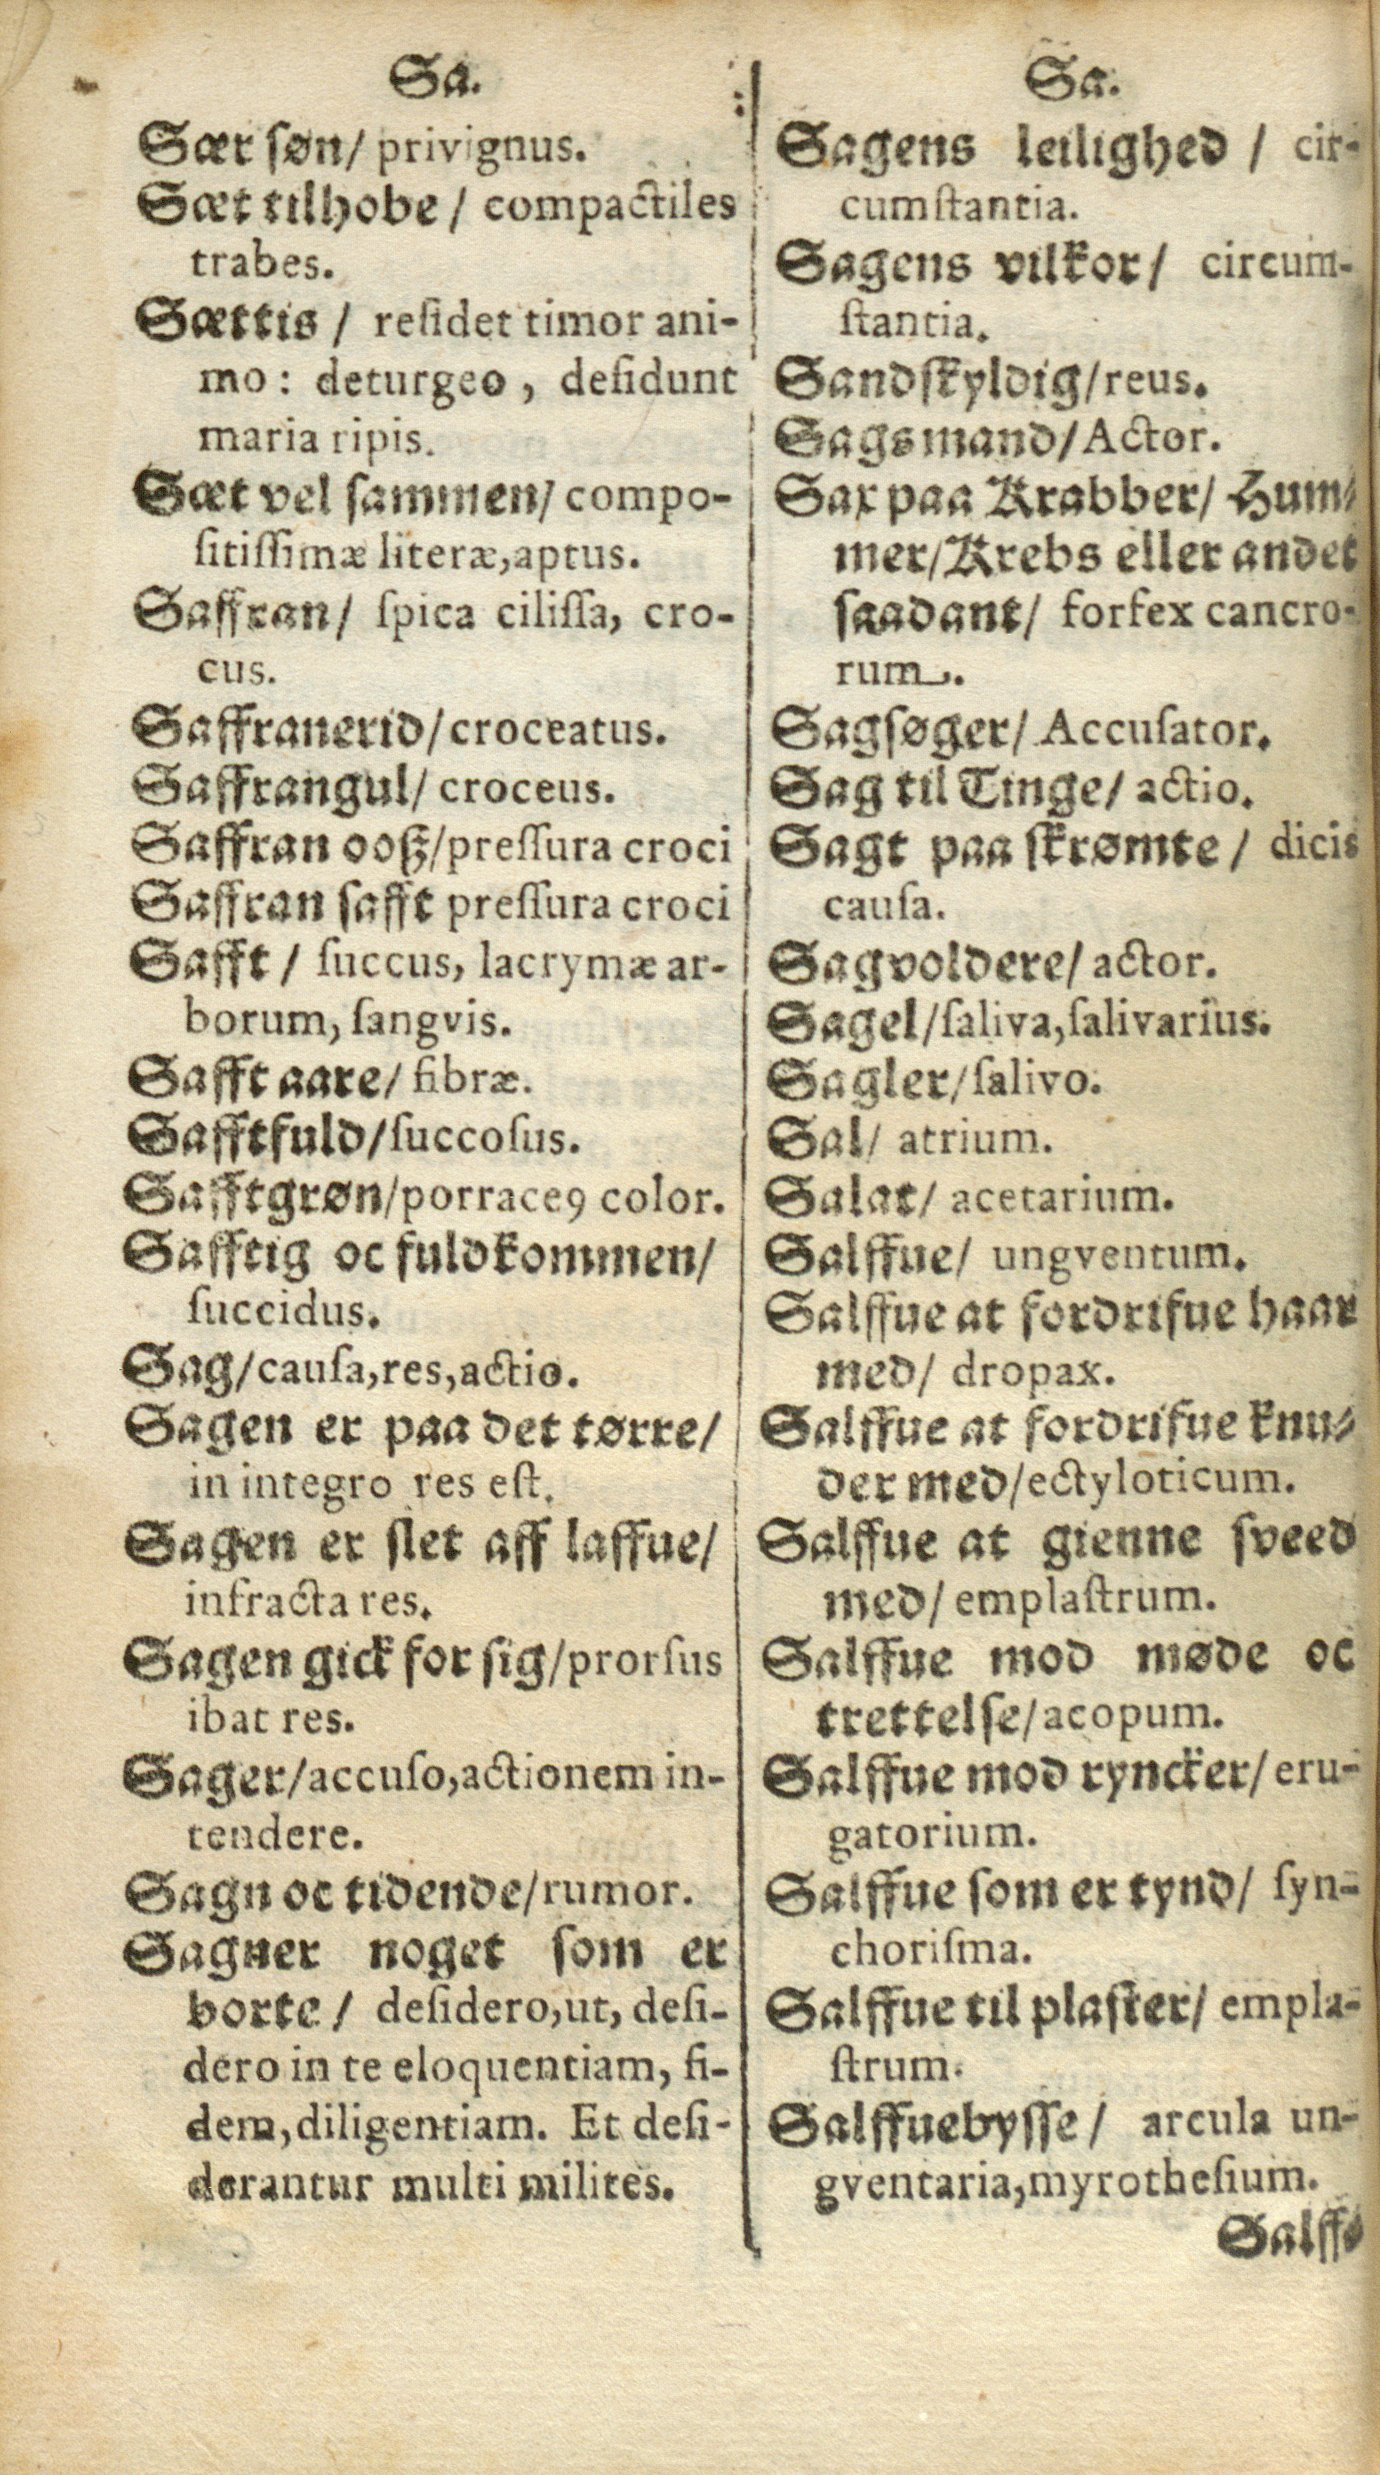 Sa.
Sær søn/ privignus.
Sæt tilhobe/ compactiles
trabes.
Sættis/ reſidet timor ani-
mo: deturgeo, deſidunt
maria ripis.
Sæt vel ſammen/ compo-
ſitiſſimæ literæ,aptus.
Saffran/ ſpica ciliſſa, cro-
cus.
Saffranerid/croceatus.
Saffrangul/ croceus.
Saffran ooß/preſſura croci
Saffran ſafft preſſura croci
Safft/ ſuccus, lacrymæ ar-
borum, ſangvis.
Safft aare/ fibræ.
Safftfuld/ſuccoſus.
Safftgrøn/porraceꝰ color.
Safftig oc fuldkommen/
ſuccidus.
Sag/cauſa,res,actio.
Sagen er paa det tørre/
in integro res eſt.
Sagen er ſlet aff laffue/
infracta res.
Sagen gick for ſig/prorſus
ibat res.
Sager/accuſo,actionem in-
tendere.
Sagn oc tidende/rumor.
Sagner noget ſom er
borte/ deſidero,ut, deſi-
dero in te eloquentiam, fi-
dem,diligentiam. Et deſi-
derantur multi milites.
Sa.
Sagens leilighed/ cir-
cumſtantia.
Sagens vilkor/ circum-
ſtantia.
Sandſkyldig/reus.
Sagsmand/Actor.
Sax paa Krabber/ Hum-
mer/Krebs eller andet
ſaadant/ forfex cancro-
rum.
Sagſøger/ Accuſator.
Sag til Tinge/ actio.
Sagt paa ſkrømte/ dicis
cauſa.
Sagvoldere/ actor.
Sagel/ſaliva,ſalivarius.
Sagler/ſalivo.
Sal/ atrium.
Salat/ acetarium.
Salffue/ ungventum.
Salffue at fordrifue haar
med/ dropax.
Salffue at fordrifue knu-
der med/ectyloticum.
Salffue at gienne ſveed
med/ emplaſtrum.
Salffue mod møde oc
trettelſe/acopum.
Salffue mod ryncker/ eru-
gatorium.
Salffue ſom er tynd/ ſyn-
choriſma.
Salffue til plaſter/ empla-
ſtrum.
Salffuebyſſe/ arcula un-
gventaria,myrotheſium.